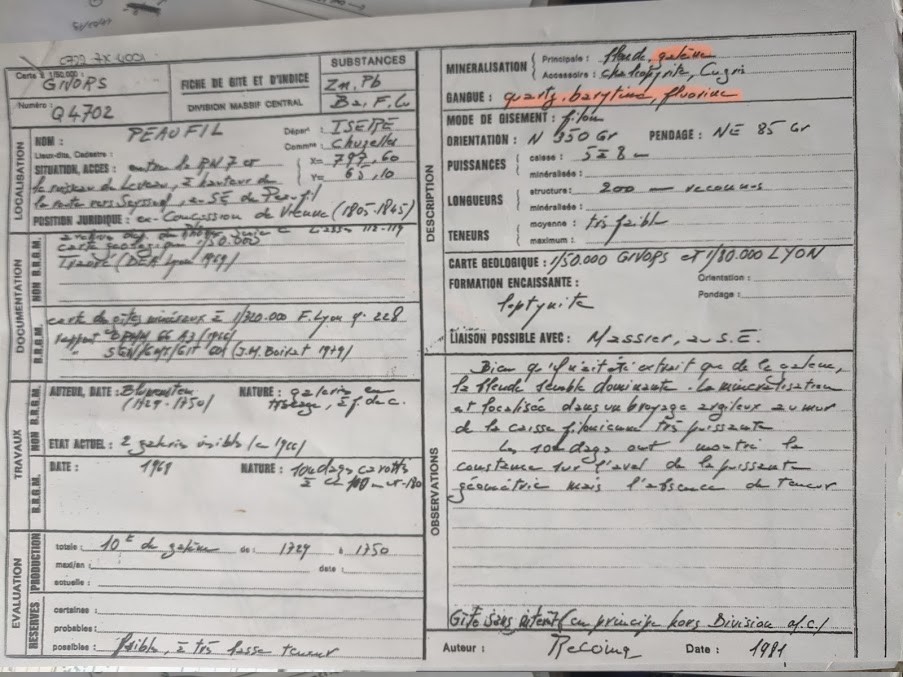 Carte à 1/50.000 :
GIVORS
Numéro :
Q4702
FICHE DE GITE ET D'INDICE
DIVISION MASSIF CENTRAL
SUBSTANCES
Zn, Pb
Ba, F, Cu
LOCALISATION
NOM : PEAUFIL
Lieux-dits, Cadastre :
Départ : ISERE
Comm : Chuzelles
SITUATION, ACCES : entre la RN 7 et
X= 797,60
Y= 63,10
le ruisseau de Leveau, à hauteur de
la route vers Seyssuel, au SE de
POSITION JURIDIQUE : ex-Concession de Vienne (1805-1845)
DOCUMENTATION
NON B.R.G.M.
carte géologique 1/50.000
(DEA Lyon 1969)
B.R.G.M.
carte des gites minéraux à 1/320.000 F. Lyon n° 228
rapport A3 (1966)
(J.M. 1979)
TRAVAUX
NON B.R.G.M.
AUTEUR, DATE : Blumenstein
(1729-1750)
NATURE : galeries en
ETAT ACTUEL : 2 galeries visibles (en 1966)
B.R.G.M.
DATE : 1968
NATURE : sondages carottés
à
EVALUATION
PRODUCTION
totale : 10t de galène de : 1729 à 1750
maxi/an : date :
actuelle :
RESERVES
certaines :
probables :
possibles : faible, à très basse teneur
DESCRIPTION
MINERALISATION
Principale : blende, galène
Accessoire : chalcopyrite, Cu gris
GANGUE : quartz, barytine, fluorine
MODE DE GISEMENT : filon
ORIENTATION : N 350 Gr PENDAGE : NE 85 Gr
PUISSANCES
caisse : 5 à 8 m
minéralisée :
LONGUEURS
structure : 200 m reconnus
minéralisée :
TENEURS
moyenne : très faible
maximum :
CARTE GEOLOGIQUE : 1/50.000 GIVORS et 1/80.000 LYON
FORMATION ENCAISSANTE :
Orientation :
Pendage :
leptynite
LIAISON POSSIBLE AVEC : Massier, au S.E.
OBSERVATIONS
Bien qu'il n'ait été extrait que de la galène,
la blende semble dominante. La minéralisation
est localisée dans un broyage argileux au mur
de la caisse filonienne très puissante
Les sondages ont montré la
constance sur l'aval de la puissante
géométrie mais l'absence de teneur
Gite sans intérêt (en principe hors Division M.C.)
Auteur : Recoing 1981